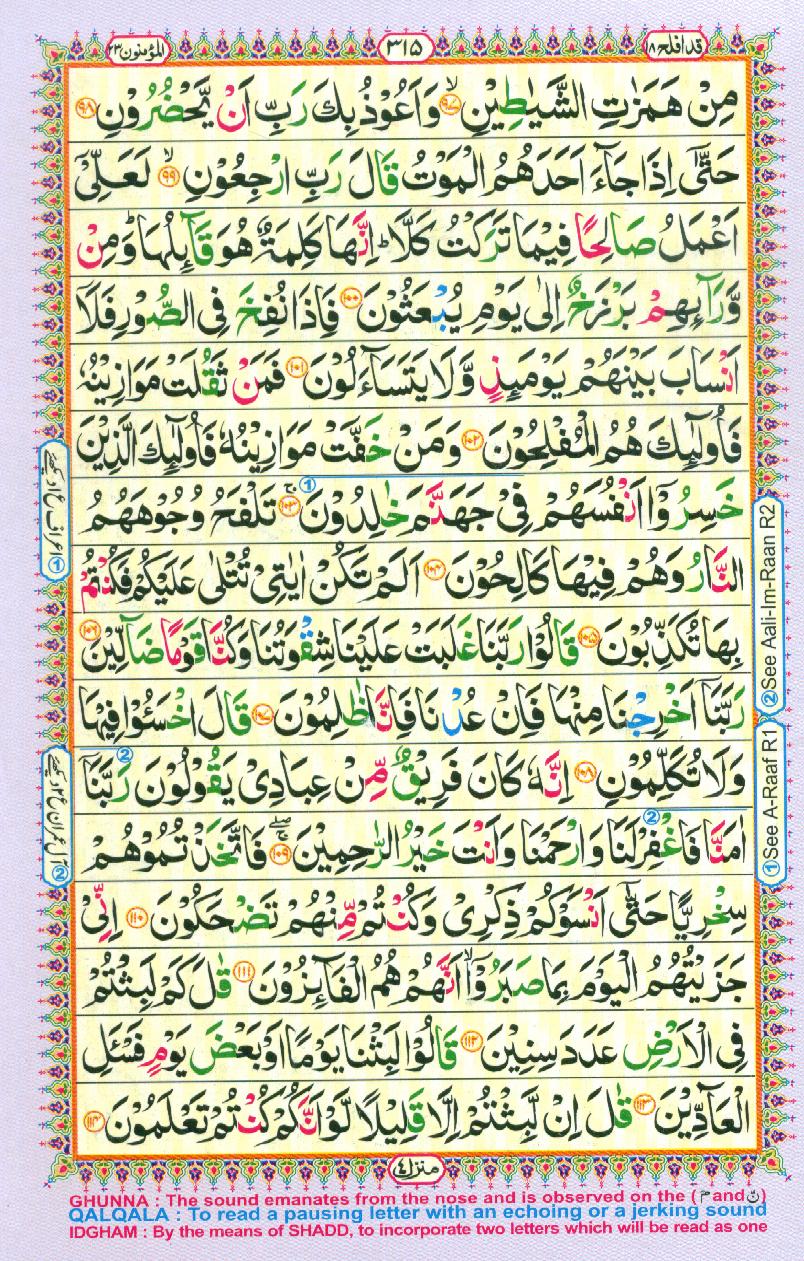 قد افلح ۱۸
۳۱۵
المؤمنون ۲۳
مِنْ هَمَزٰتِ الشَّيٰطِيْنِ ۙ﴿۹۷﴾ وَاَعُوْذُ بِكَ رَبِّ اَنْ يَّحْضُرُوْنِ ﴿۹۸﴾
حَتّٰٓى اِذَا جَآءَ اَحَدَهُمُ الْمَوْتُ قَالَ رَبِّ ارْجِعُوْنِ ۙ﴿۹۹﴾ لَعَلِّىْٓ
اَعْمَلُ صَالِحًا فِيْمَا تَرَكْتُ كَلَّا ؕ اِنَّهَا كَلِمَةٌ هُوَ قَآئِلُهَا ؕ وَمِنْ
وَّرَآئِهِمْ بَرْزَخٌ اِلٰى يَوْمِ يُبْعَثُوْنَ ﴿۱۰۰﴾ فَاِذَا نُفِخَ فِى الصُّوْرِ فَلَاۤ
اَنْسَابَ بَيْنَهُمْ يَوْمَئِذٍ وَّلَا يَتَسَآءَلُوْنَ ﴿۱۰۱﴾ فَمَنْ ثَقُلَتْ مَوَازِيْنُهٗ
فَاُولٰٓئِكَ هُمُ الْمُفْلِحُوْنَ ﴿۱۰۲﴾ وَمَنْ خَفَّتْ مَوَازِيْنُهٗ فَاُولٰٓئِكَ الَّذِيْنَ
خَسِرُوْٓا اَنْفُسَهُمْ فِىْ جَهَنَّمَ خٰلِدُوْنَ ۚ﴿۱۰۳﴾ ① تَلْفَحُ وُجُوْهَهُمُ
النَّارُ وَهُمْ فِيْهَا كَالِحُوْنَ ﴿۱۰۴﴾ اَلَمْ تَكُنْ اٰيٰتِىْ تُتْلٰى عَلَيْكُمْ فَكُنْتُمْ
بِهَا تُكَذِّبُوْنَ ﴿۱۰۵﴾ قَالُوْا رَبَّنَا غَلَبَتْ عَلَيْنَا شِقْوَتُنَا وَكُنَّا قَوْمًا ضَآلِّيْنَ ﴿۱۰۶﴾
رَبَّنَاۤ اَخْرِجْنَا مِنْهَا فَاِنْ عُدْنَا فَاِنَّا ظٰلِمُوْنَ ﴿۱۰۷﴾ قَالَ اخْسَئُوْا فِيْهَا
وَلَا تُكَلِّمُوْنِ ﴿۱۰۸﴾ اِنَّهٗ كَانَ فَرِيْقٌ مِّنْ عِبَادِىْ يَقُوْلُوْنَ ② رَبَّنَاۤ
اٰمَنَّا فَاغْفِرْ لَنَا ② وَارْحَمْنَا وَاَنْتَ خَيْرُ الرّٰحِمِيْنَ ﴿۱۰۹﴾ فَاتَّخَذْتُمُوْهُمْ
سِخْرِيًّا حَتّٰٓى اَنْسَوْكُمْ ذِكْرِىْ وَكُنْتُمْ مِّنْهُمْ تَضْحَكُوْنَ ﴿۱۱۰﴾ اِنِّىْ
جَزَيْتُهُمُ الْيَوْمَ بِمَا صَبَرُوْٓا ۙ اَنَّهُمْ هُمُ الْفَآئِزُوْنَ ﴿۱۱۱﴾ قٰلَ كَمْ لَبِثْتُمْ
فِى الْاَرْضِ عَدَدَ سِنِيْنَ ﴿۱۱۲﴾ قَالُوْا لَبِثْنَا يَوْمًا اَوْ بَعْضَ يَوْمٍ فَسْئَلِ
الْعَآدِّيْنَ ﴿۱۱۳﴾ قٰلَ اِنْ لَّبِثْتُمْ اِلَّا قَلِيْلًا لَّوْ اَنَّكُمْ كُنْتُمْ تَعْلَمُوْنَ ﴿۱۱۴﴾
② See Aali-Im-Raan R2
① See A-Raaf R1
منزل ٤
GHUNNA : The sound emanates from the nose and is observed on the (مّ and نّ)
QALQALA : To read a pausing letter with an echoing or a jerking sound
IDGHAM : By the means of SHADD, to incorporate two letters which will be read as one